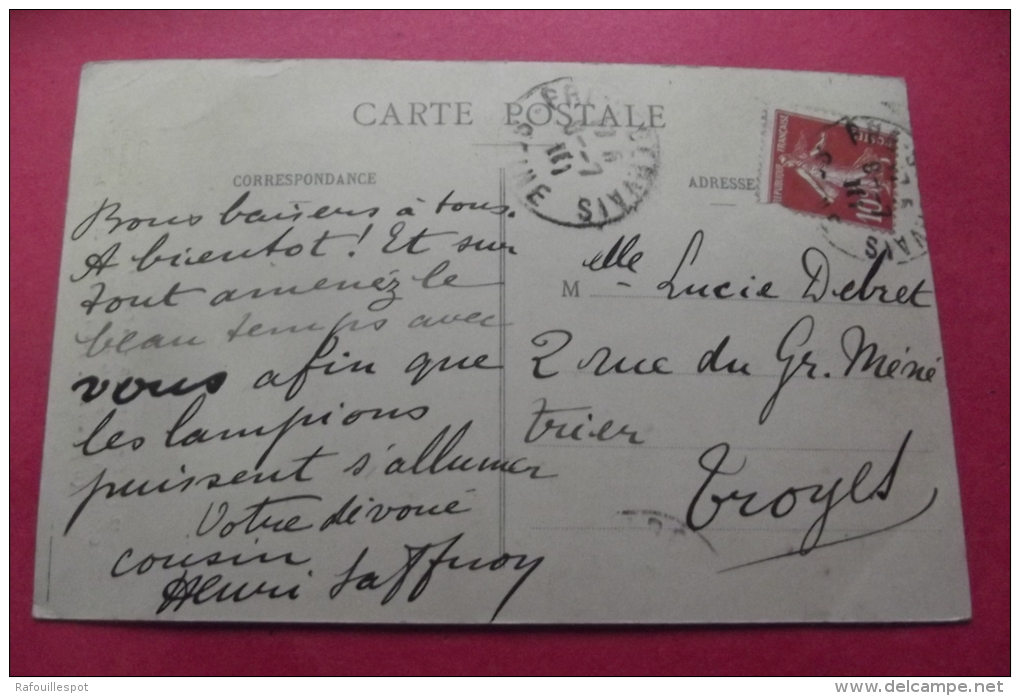 CARTE POSTALE
CORRESPONDANCE
ADRESSE
Bons baisers à tous.
A bientot! Et sur
tout amenez le
beau temps avec
vous afin que
les lampions
puissent s'allumer
Votre dévoué
cousin
Henri Saffroy
Melle Lucie Debret
2 rue du Gr. Méné
trier
Troyes
10
Rafouillespot
www.delcampe.net